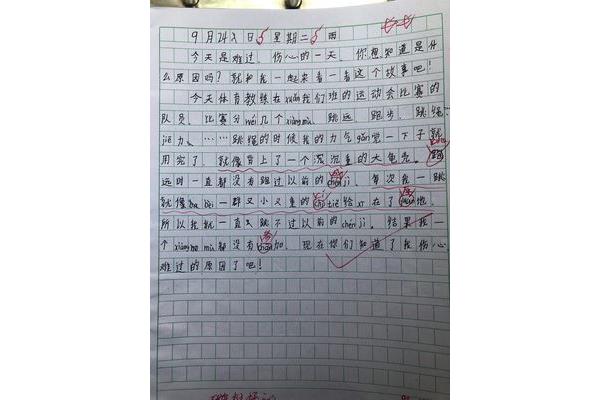 9月24日 星期二 雨
今天是难过、伤心的一天。你想知道是什
么原因吗？就和我一起来看一看这个故事吧！
今天体育教练在xuǎn我们班的运动会比赛的
队员。比赛分wéi几个xiàngmù，跳远、跑步、跳绳、
jiē力、……跳绳的时候我的力气gǎn觉一下子就
用完了，就像背上了一个沉沉重的大龟壳。跳
远时一直都没有跳过以前的chénjì。每次我一跳
就像 一群又小又重的 tiě给 在了 地，
所以我就一直跳不过以前的chénjì。结果我一
个xiàng mù都没有 。现在你们知道了我伤心、
难过的原因了吧！